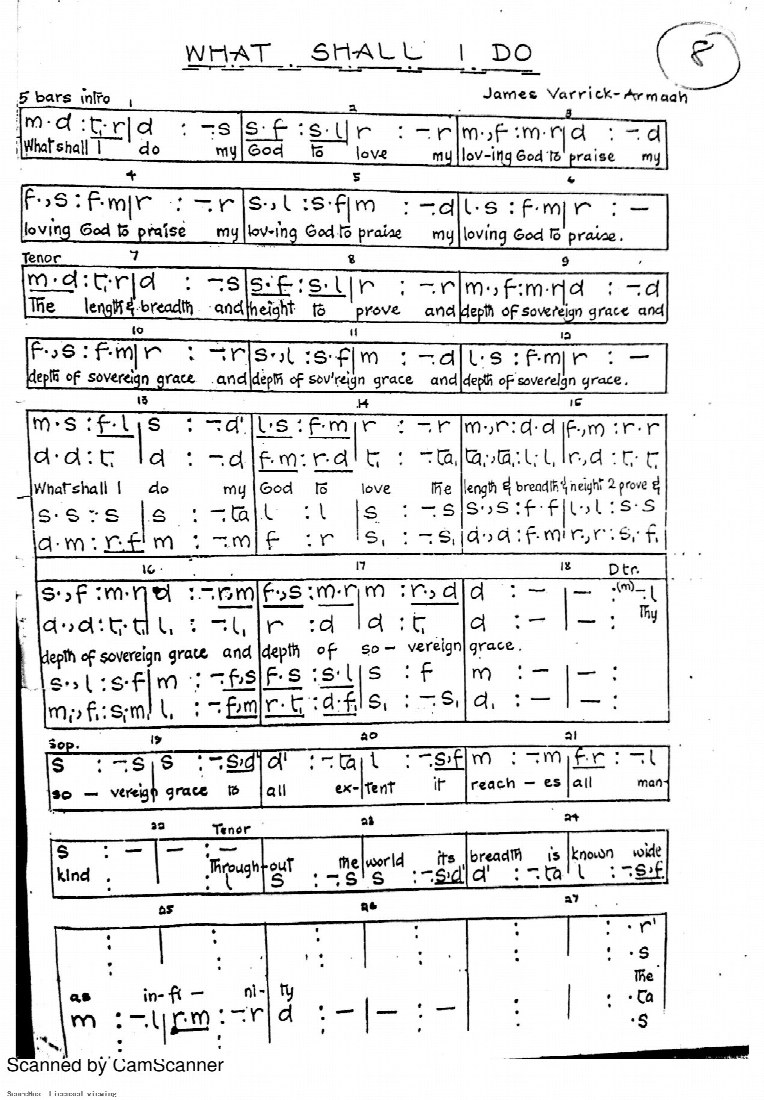 WHAT SHALL I DO
8
5 bars intro
James Varrick-Armaah
1 2 3
m·d:t,·r|d :-·s|s·f:s·l|r :-·r|m·,f:m·r|d :-·d
What shall I do my God to love my lov-ing God to praise my
4 5 6
f·,s:f·m|r :-·r|s·,l:s·f|m :-·d|l·s:f·m|r :-
loving God to praise my lov-ing God to praise my loving God to praise.
Tenor 7 8 9
m·d:t,·r|d :-·s|s·f:s·l|r :-·r|m·,f:m·r|d :-·d
The length & breadth and height to prove and depth of sovereign grace and
10 11 12
f·,s:f·m|r :-·r|s·,l:s·f|m :-·d|l·s:f·m|r :-
depth of sovereign grace and depth of sov'reign grace and depth of sovereign grace.
13 14 15
m·s:f·l|s :-·d'|l·s:f·m|r :-·r|m·,r:d·d|f·,m:r·r
d·d:t,|d :-·d|f·m:r·d|t, :-·ta,|ta,·,ta,:l,·l,|r·,d:t,·t,
What shall I do my God to love the length & breadth & height 2 prove &
s·s:s|s :-·ta|l :l|s :-·s|s·,s:f·f|l·,l:s·s
d·m:r·f|m :-·m|f :r|s, :-·s,|d·,d:f·m|r·,r:s,·f,
16 17 18 Dtr.
s·,f:m·r|d :-·r,m|f·,s:m·r|m :r·,d|d :-|- :(m)-·l
d·,d:t,·t,|l, :-·l,|r :d|d :t,|d :-|- :
Thy
depth of sovereign grace and depth of so-vereign grace.
s·,l:s·f|m :-·f,s|f·s:s·l|s :f|m :-|- :
m,·,f,:s,·m,|l, :-·f,m|r·t,:d·f,|s, :-·s,|d, :-|- :
Sop. 19 20 21
s :-·s|s :-·s,d'|d' :-·ta|l :-·s,f|m :-·m|f·r :-·l
so-vereign grace to all ex-tent it reach-es all man-
22 Tenor 23 24
s :-|- :-
kind Through-out the world its breadth is known wide
l s :-·s|s :-·s,d'|d' :-·ta|l :-·s,f
25 26 27
·r'
·s
as in-fi-ni-ty The
m :-·l|r·m :-·r|d :-|- :- ·ta
·s
Scanned by CamScanner